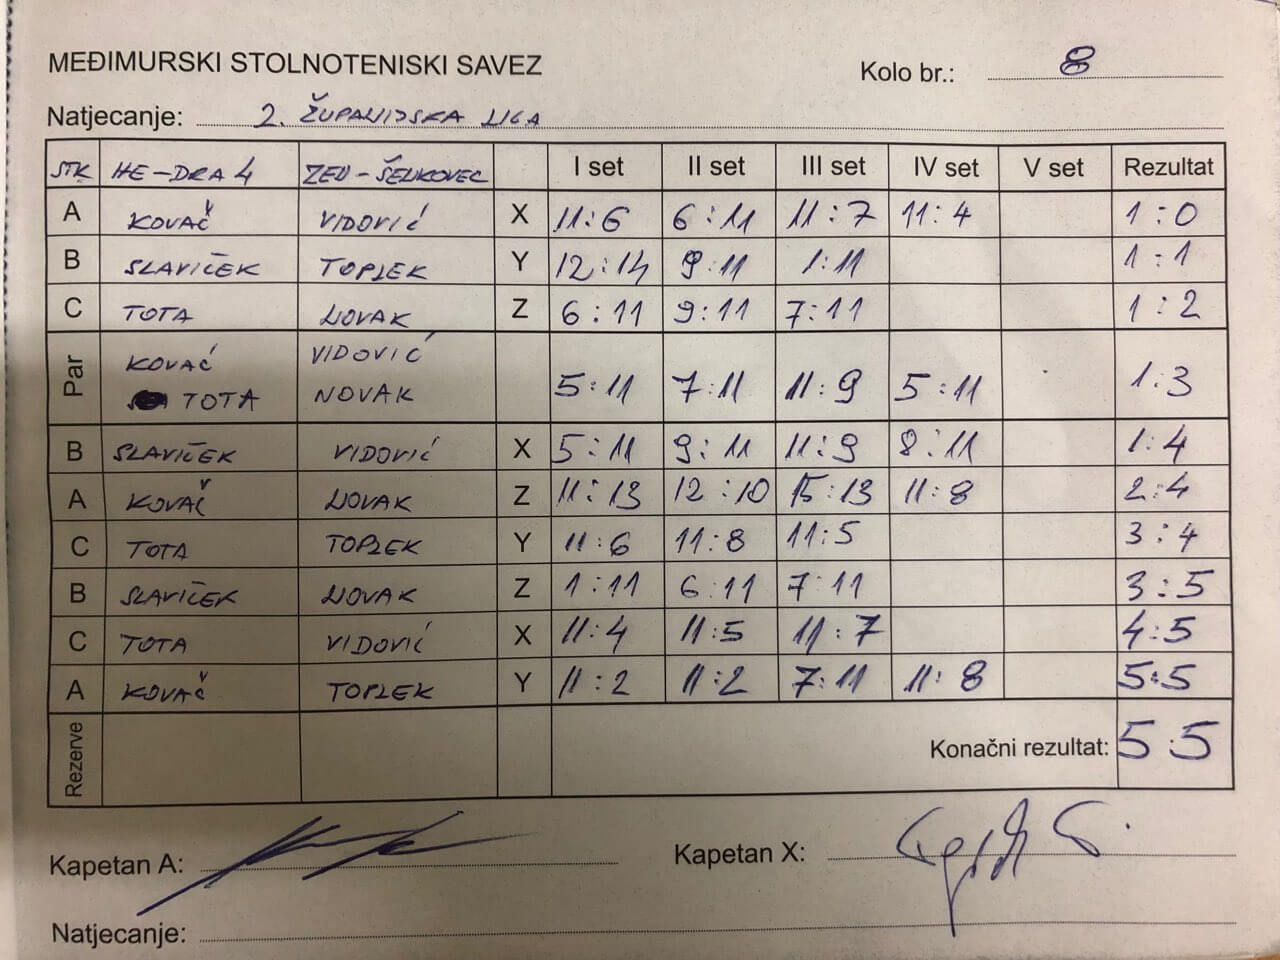 MEĐIMURSKI STOLNOTENISKI SAVEZ
Kolo br.: 8
Natjecanje: 2. ŽUPANIJSKA LIGA
STK HE-DRA 4 ZEU-ŠENKOVEC I set II set III set IV set V set Rezultat
A KOVAČ VIDOVIĆ X 11:6 6:11 11:7 11:4 1:0
B SLAVIČEK TOPLEK Y 12:14 9:11 1:11 1:1
C TOTA NOVAK Z 6:11 9:11 7:11 1:2
Par KOVAČ VIDOVIĆ
TOTA NOVAK 5:11 7:11 11:9 5:11 1:3
B SLAVIČEK VIDOVIĆ X 5:11 9:11 11:9 8:11 1:4
A KOVAČ NOVAK Z 11:13 12:10 15:13 11:8 2:4
C TOTA TOPLEK Y 11:6 11:8 11:5 3:4
B SLAVIČEK NOVAK Z 1:11 6:11 7:11 3:5
C TOTA VIDOVIĆ X 11:4 11:5 11:7 4:5
A KOVAČ TOPLEK Y 11:2 11:2 7:11 11:8 5:5
Rezerve Konačni rezultat: 5:5
Kapetan A: Kapetan X:
Natjecanje: